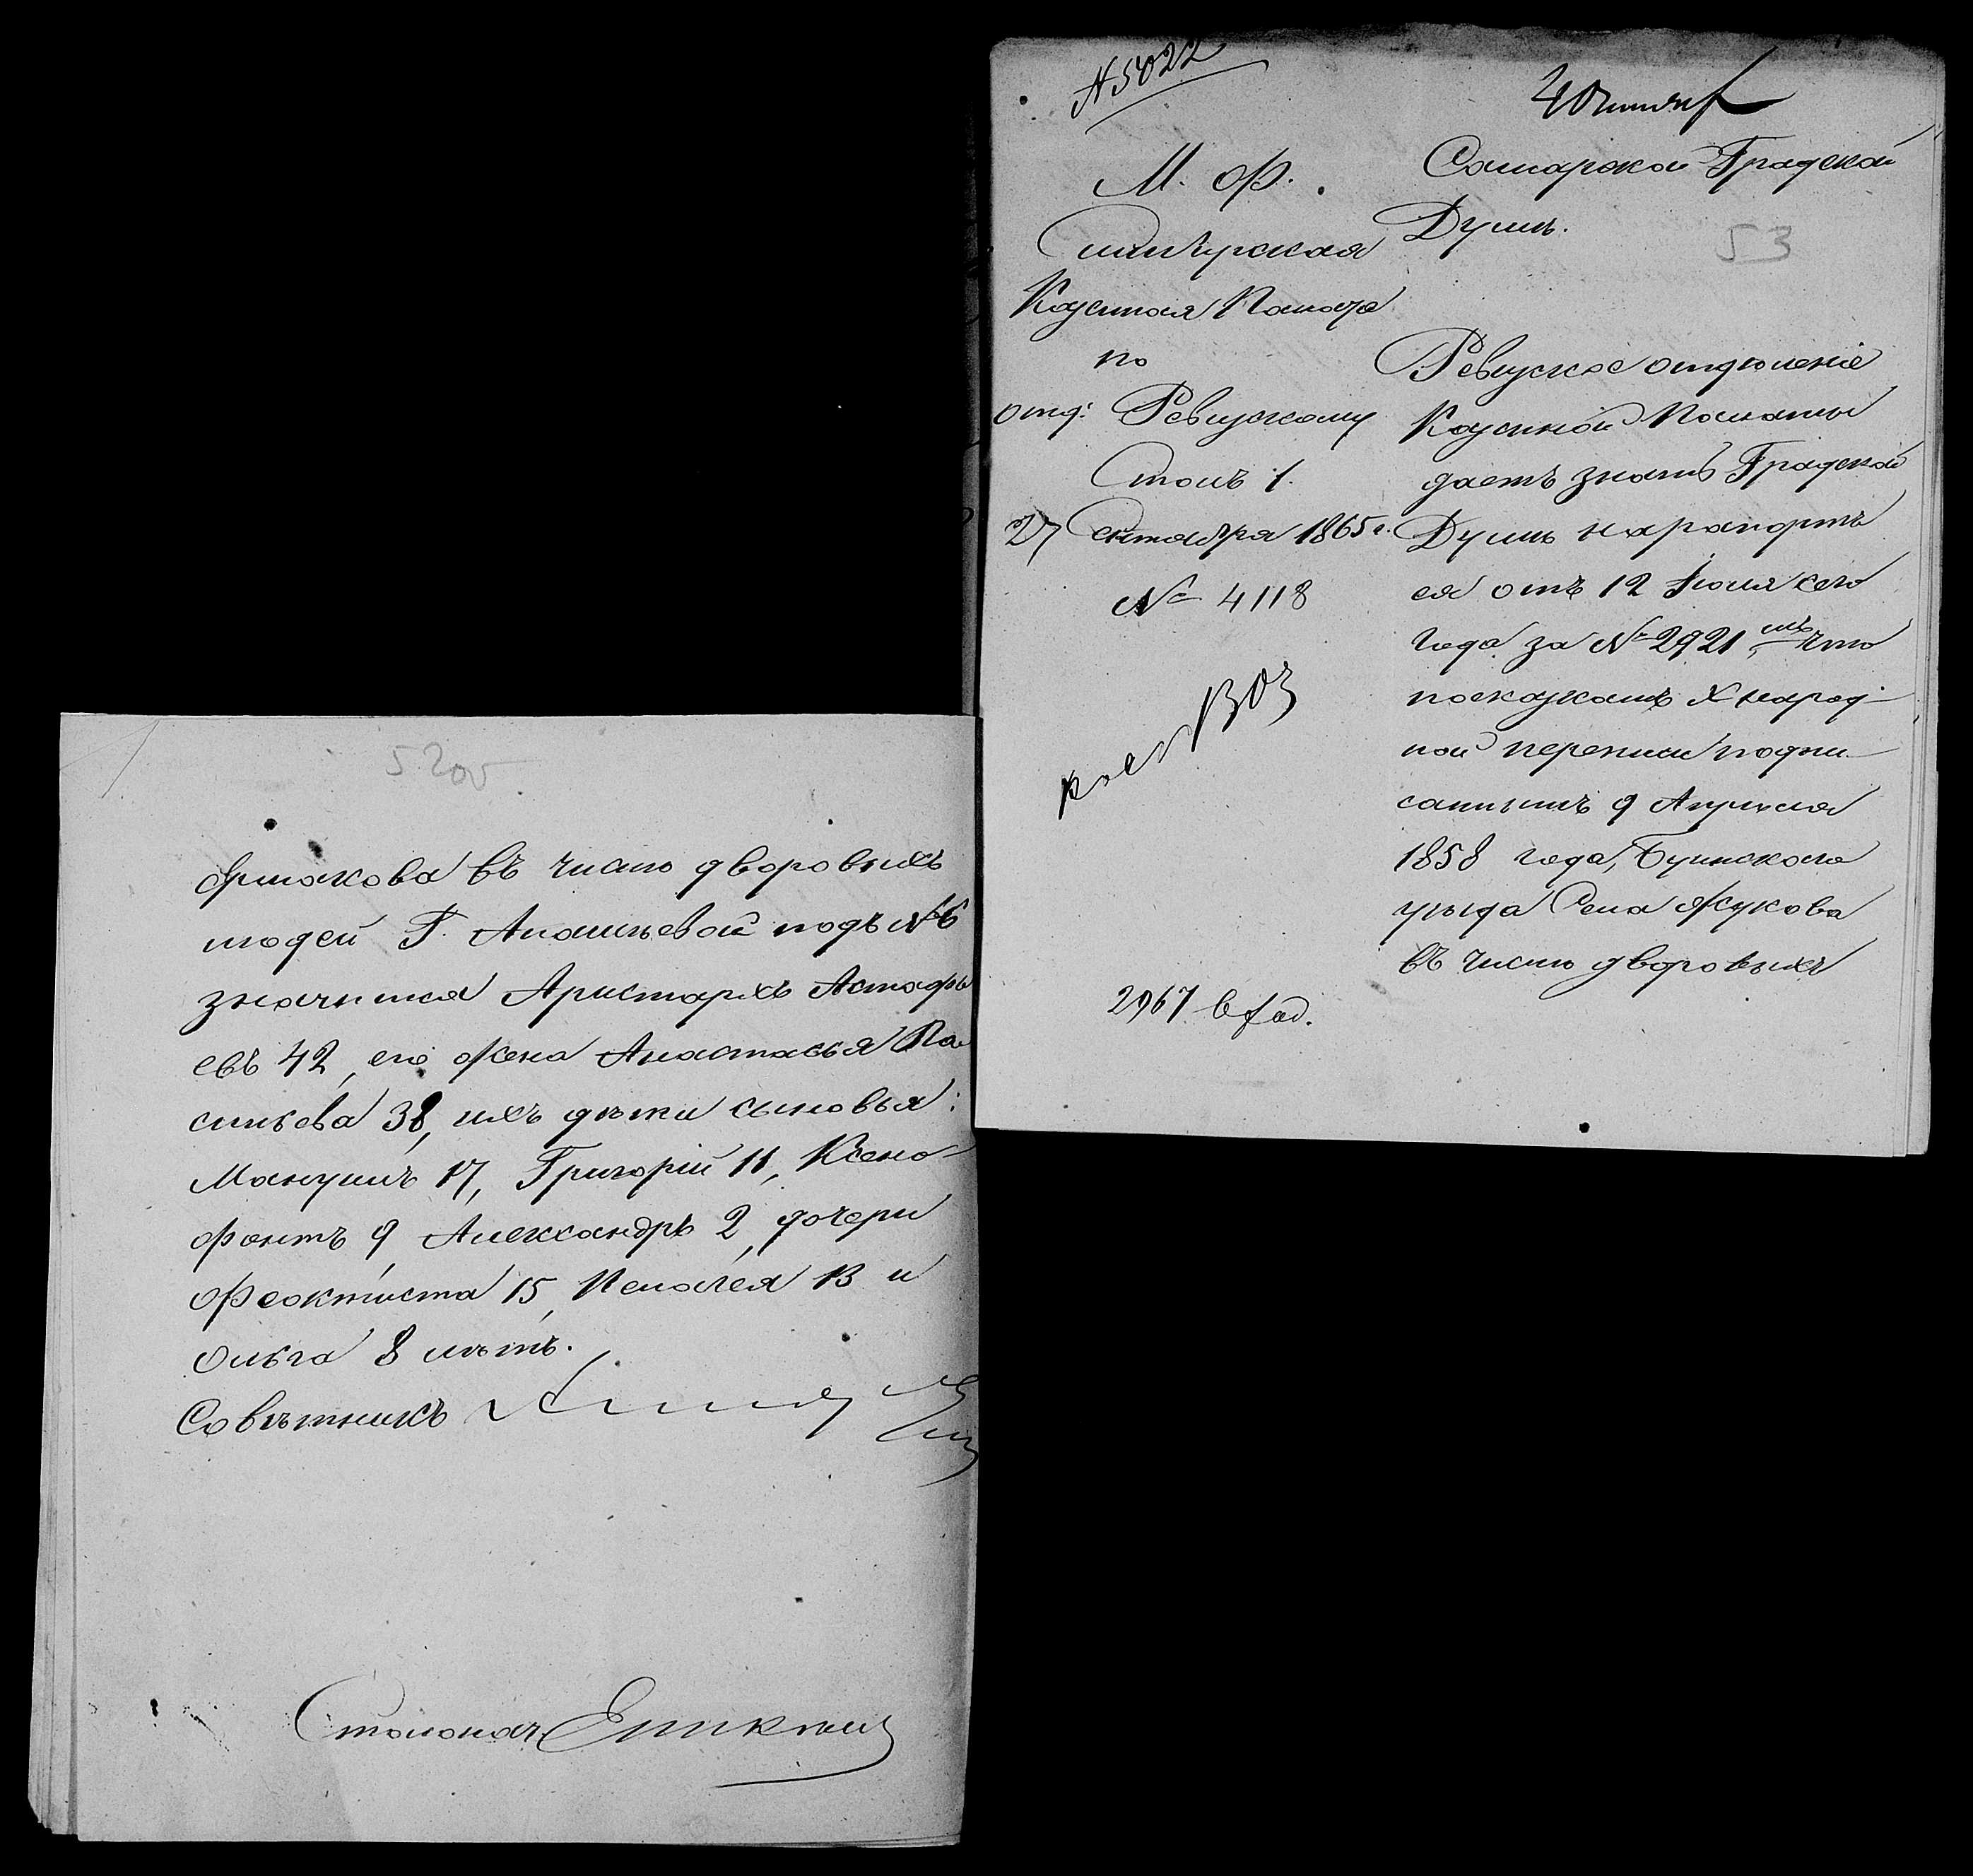 № 5022
4 Октября
М. Ф.
Симбирская
Казенная Палата
по
отд: Ревизскому
Столъ 1.
27 Сентября 1865 г.
№ 4118
2967
Самарской Градской
Думѣ.
53
Ревизское отдѣленіе
Казенной Палаты
даетъ знать Градской
Думѣ на рапортъ
ея отъ 12 Іюля сего
года за № 2921, что
по сказкамъ X народ-
ной переписи подпи-
саннымъ 9 Апрѣля
1858 года, Буинскаго
уѣзда Села Жукова
въ числѣ дворовыхъ
52 об
въ числѣ дворовыхъ
людей Г. Ананьевой подъ № 6
значится Аристархъ Астафь
евъ 42, его жена Анастасья Ва
сильева 38, ихъ дѣти сыновья:
Мануилъ 17, Григорій 11, Ксено-
фонтъ 9 Александръ 2, дочери
Феоктиста 15, Пелагея 13 и
Ольга 8 лѣтъ.
Совѣтникъ
Столонач.